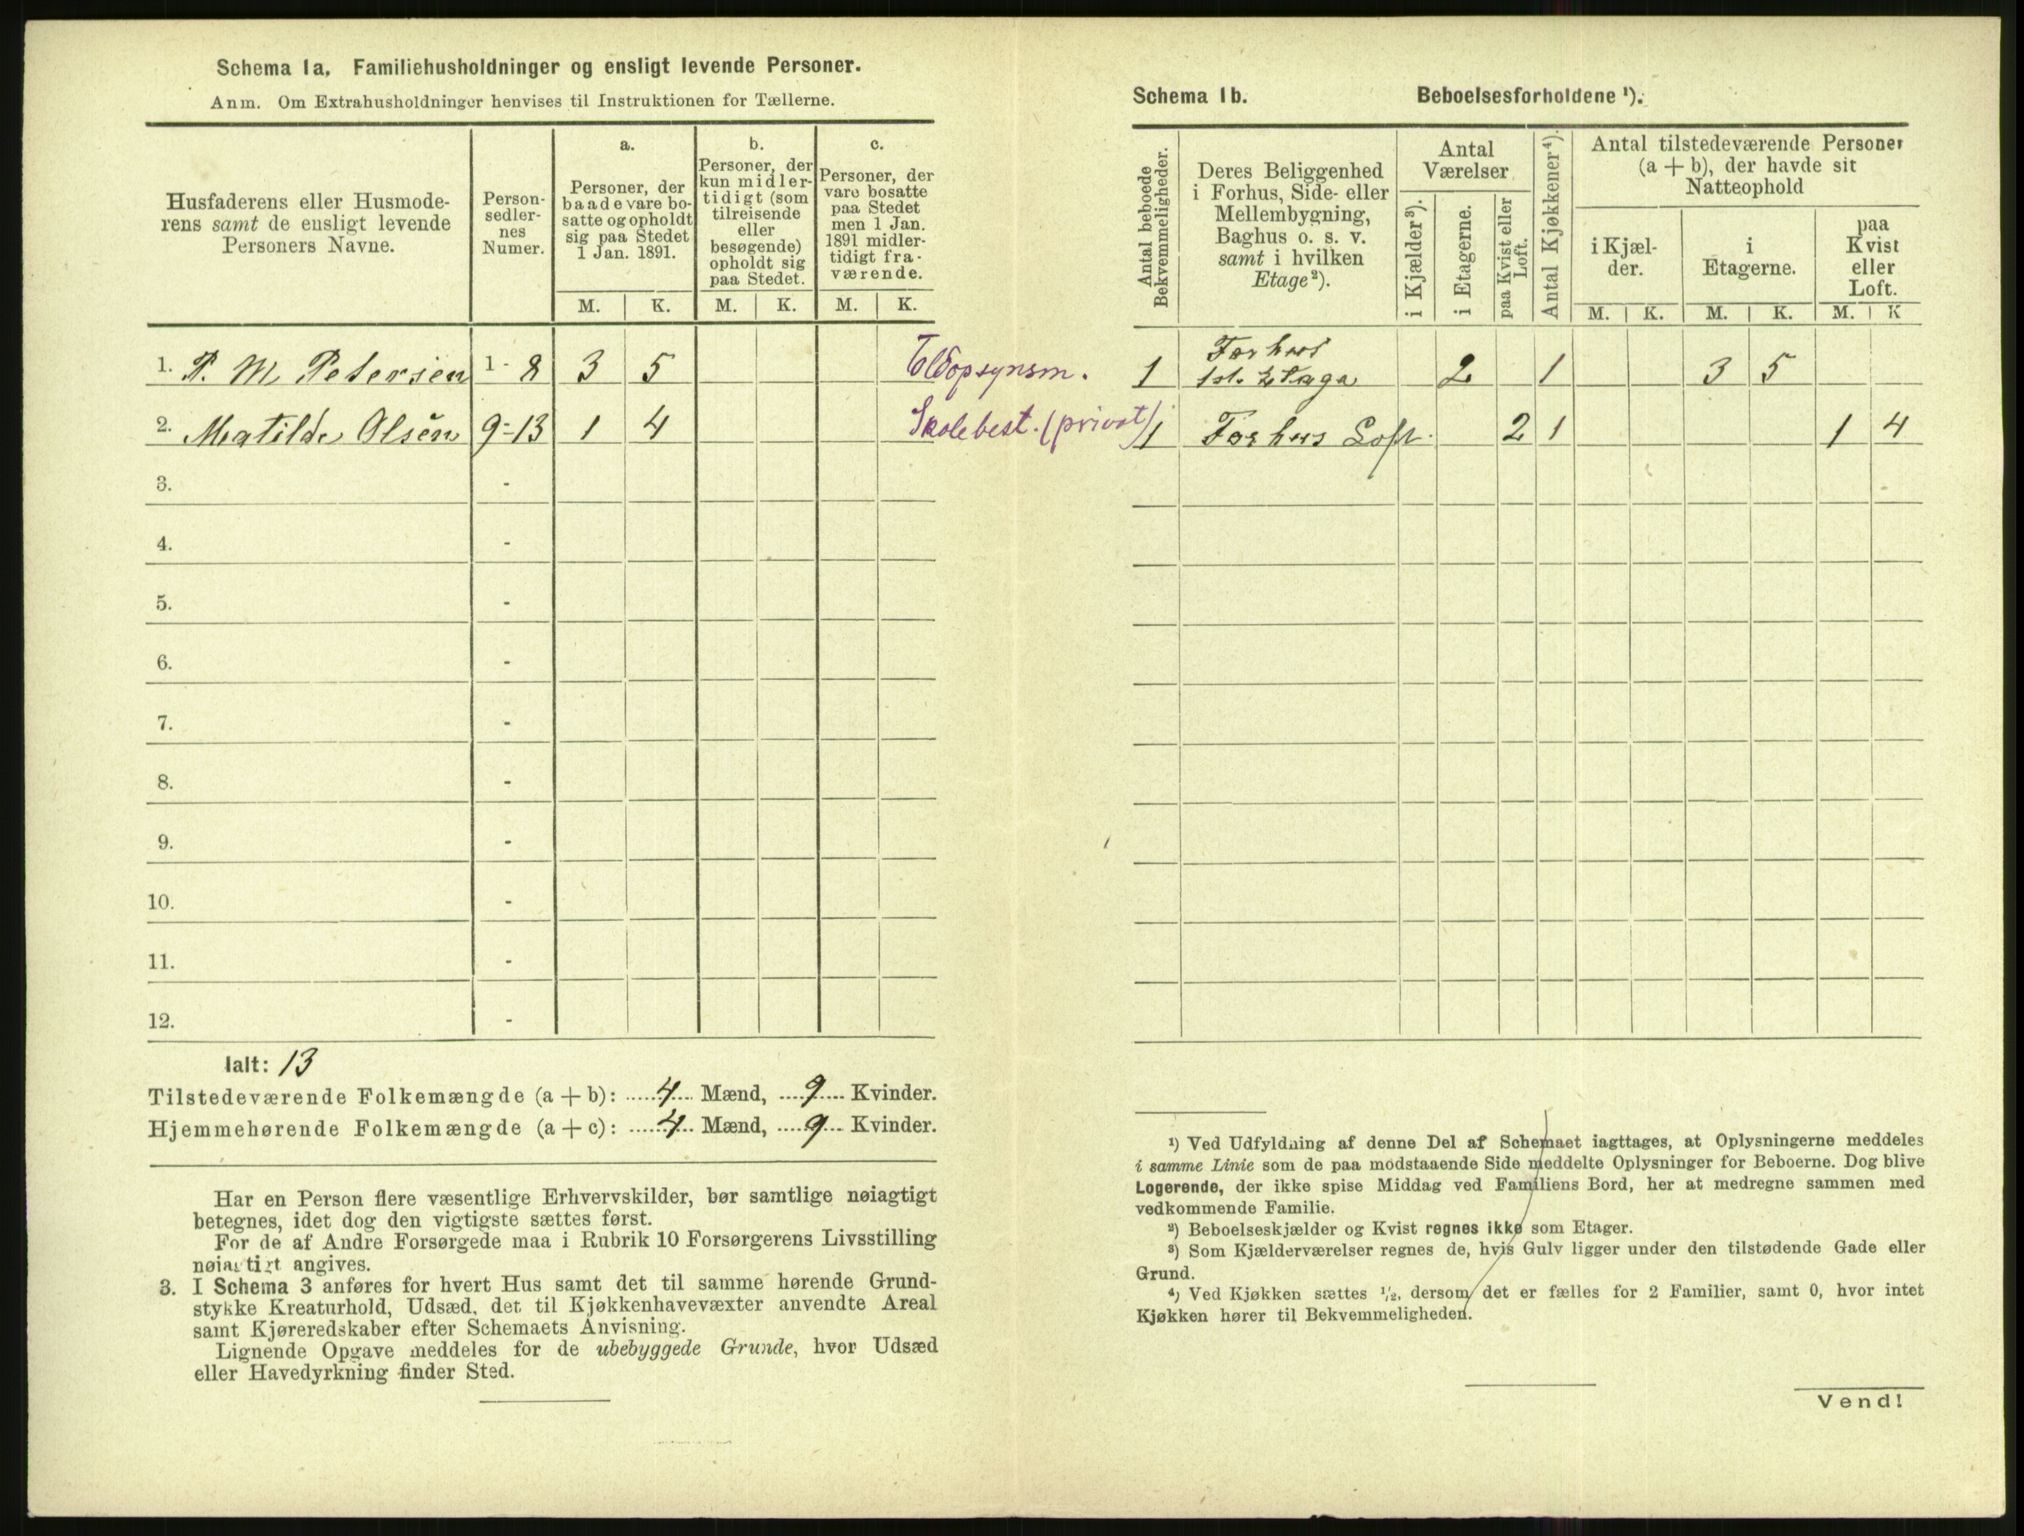 Schema 1a. Familiehusholdninger og ensligt levende Personer.
Anm. Om Extrahusholdninger henvises til Instruktionen for Tællerne.
Husfaderens eller Husmode-
rens samt de ensligt levende
Personers Navne.
Person-
sedler-
nes
Numer.
a.
Personer, der
baade vare bo-
satte og opholdt
sig paa Stedet
1 Jan. 1891.
b.
Personer, der
kun midler-
tidigt (som
tilreisende
eller
besøgende)
opholdt sig
paa Stedet.
c.
Personer, der
vare bosatte
paa Stedet
men 1 Jan.
1891 midler-
tidigt fra-
værende.
M. K. M. K. M. K.
1. P. M. Petersen 1 - 8 3 5 Toldopsynsm.
2. Matilde Olsen 9-13 1 4 Skolebest. (privat)
3. -
4. -
5. -
6. -
7. -
8. -
9. -
10. -
11. -
12. -
Ialt: 13
Tilstedeværende Folkemængde (a + b): 4 Mænd, 9 Kvinder.
Hjemmehørende Folkemængde (a + c): 4 Mænd, 9 Kvinder.
Har en Person flere væsentlige Erhvervskilder, bør samtlige nøiagtigt
betegnes, idet dog den vigtigste sættes først.
For de af Andre Forsørgede maa i Rubrik 10 Forsørgerens Livsstilling
nøiagtigt angives.
3. I Schema 3 anføres for hvert Hus samt det til samme hørende Grund-
stykke Kreaturhold, Udsæd, det til Kjøkkenhavevæxter anvendte Areal
samt Kjøreredskaber efter Schemaets Anvisning.
Lignende Opgave meddeles for de ubebyggede Grunde, hvor Udsæd
eller Havedyrkning finder Sted.
Schema 1b. Beboelsesforholdene ¹).
Antal beboede
Bekvemmeligheder.
Deres Beliggenhed
i Forhus, Side- eller
Mellembygning,
Baghus o. s. v.
samt i hvilken
Etage²).
Antal
Værelser
i Kjælder³).
i Etagerne.
paa Kvist eller
Loft.
Antal Kjøkkener⁴).
Antal tilstedeværende Personer
(a + b), der havde sit
Natteophold
i Kjæl-
der.
i
Etagerne.
paa
Kvist
eller
Loft.
M. K. M. K. M. K
1 Forhus
1st. Etage 2 1 3 5
1 Forhus Loft. 2 1 1 4
¹) Ved Udfyldning af denne Del af Schemaet iagttages, at Oplysningerne meddeles
i samme Linie som de paa modstaaende Side meddelte Oplysninger for Beboerne. Dog blive
Logerende, der ikke spise Middag ved Familiens Bord, her at medregne sammen med
vedkommende Familie.
²) Beboelseskjælder og Kvist regnes ikke som Etager.
³) Som Kjælderværelser regnes de, hvis Gulv ligger under den tilstødende Gade eller
Grund.
⁴) Ved Kjøkken sættes ½, dersom det er fælles for 2 Familier, samt 0, hvor intet
Kjøkken hører til Bekvemmeligheden.
Vend!